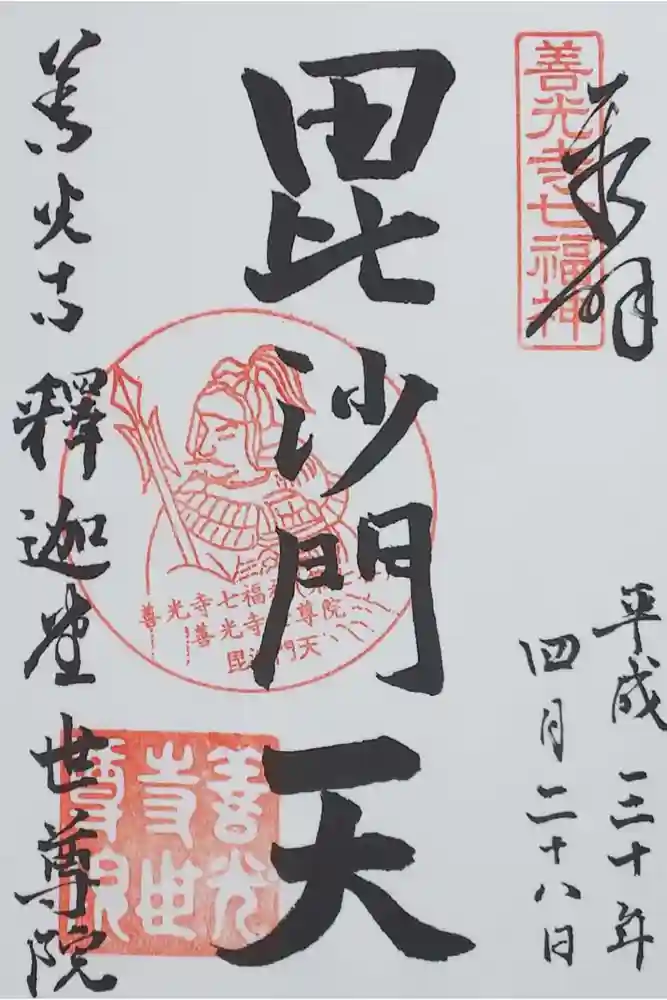 奉拝
善光寺七福神
平成三十年
四月二十八日
毘沙門天
善光寺七福
善光寺 尊院
毘沙門天
善光寺 釋迦堂 世尊院
善光
寺世
尊院